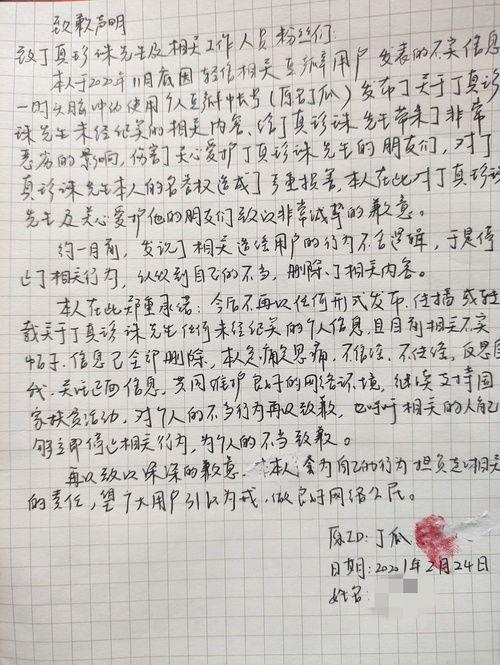 致歉声明
致丁真珍珠先生及相关工作人员粉丝们:
本人于2020年11月底因轻信相关豆瓣用户发表的不实信息
一时头脑冲动使用个人豆瓣帐号(原名丁瓜)发布了关于丁真珍
珠先生未经纪实的相关内容、给丁真珍珠先生带来了非常
恶劣的影响,伤害了关心爱护丁真珍珠先生的朋友们,对丁
真珍珠先生本人的名誉权造成了严重损害,本人在此对丁真珍珠
先生及关心爱护他的朋友们致以非常诚挚的歉意。
约一月前,发现了相关造谣用户的行为不合逻辑,于是停
止了相关行为,认识到自己的不当,删除了相关内容。
本人在此郑重承诺:今后不再以任何形式发布、传播或转
载关于丁真珍珠先生任何未经纪实的个人信息,且目前相关不实
帖子、信息已全部删除,本人定痛定思痛,不信谣、不传谣,反思自
我,关注正面信息,共同维护良好的网络环境,继续支持国
家扶贫活动,对个人的不当行为再以致歉,也呼吁相关的人能
够立即停止相关行为,为个人的不当致歉。
再以致以深深的歉意,本人会为自己的行为担负起相关
的责任,望广大用户引以为戒,做良好网络公民。
原ID:丁瓜
日期:2021年2月24日
姓名: